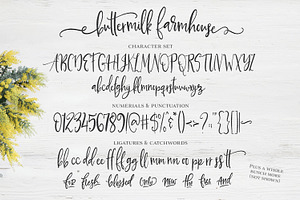 buttermilk farmhouse
CHARACTER SET
ABCDEFGHIJKLMNOPQRSTUVWXYZ
abcdefghijklmnopqrstuvwxyz
NUMERIALS & PUNCTUATION
LIGATURES & CATCHWORDS
bb cc dd ee ff gg ll mm nn oo pp rr ss tt
for fresh blessed only new the free and
PLUS A WHOLE
BUNCH MORE
(NOT SHOWN)